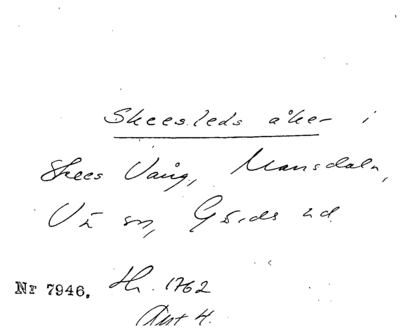 Skeesleds åker i
Skees Vång, Mansdala,
Vä sn, Gärds hd
Nr 7946. Hr. 1762
Akt 4.